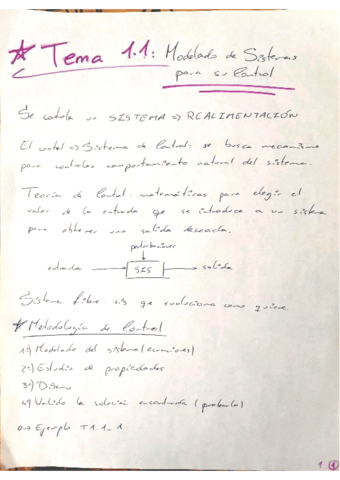 * Tema 1.1: Modelado de Sistemas
para su Control
Se controla un SISTEMA => REALIMENTACIÓN
El control => Sistema de Control: se busca mecanismo
para controlar comportamiento natural del sistema.
Teoría de Control: matemáticas para elegir el
valor de la entrada que se introduce a un sistema
para obtener una salida deseada.
perturbaciones
entrada → SIS → salida
Sistema libre: sis que evoluciona como quiere.
* Metodología de Control
1º) Modelado del sistema (ecuaciones)
2º) Estudio de propiedades
3º) Diseño
4º) Valido la solución encontrada (probarla)
Ejemplo T1.1_1
1 1